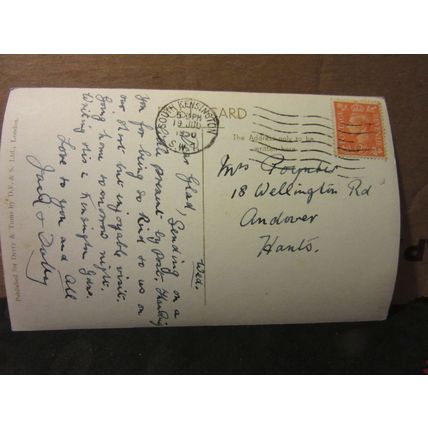 POST CARD
SOUTH KENSINGTON
19 JUL
S.W.7
The Address only to be
written here
Wed.
Dear Glad, Sending on a
little present by post. Thanking
you for being so kind to us on
our short but enjoyable visit.
Going home tomorrow night.
Writing this in Kensington Gdns.
Love to you and all
Jack + Dolly
Mrs Poynter
18 Wellington Rd
Andover
Hants.
Published for Derry & Toms by D.F. & S. Ltd., London.